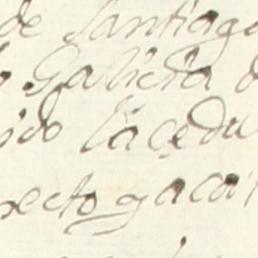 de Santiago
Galicia d
ido la cedu
recto y aca